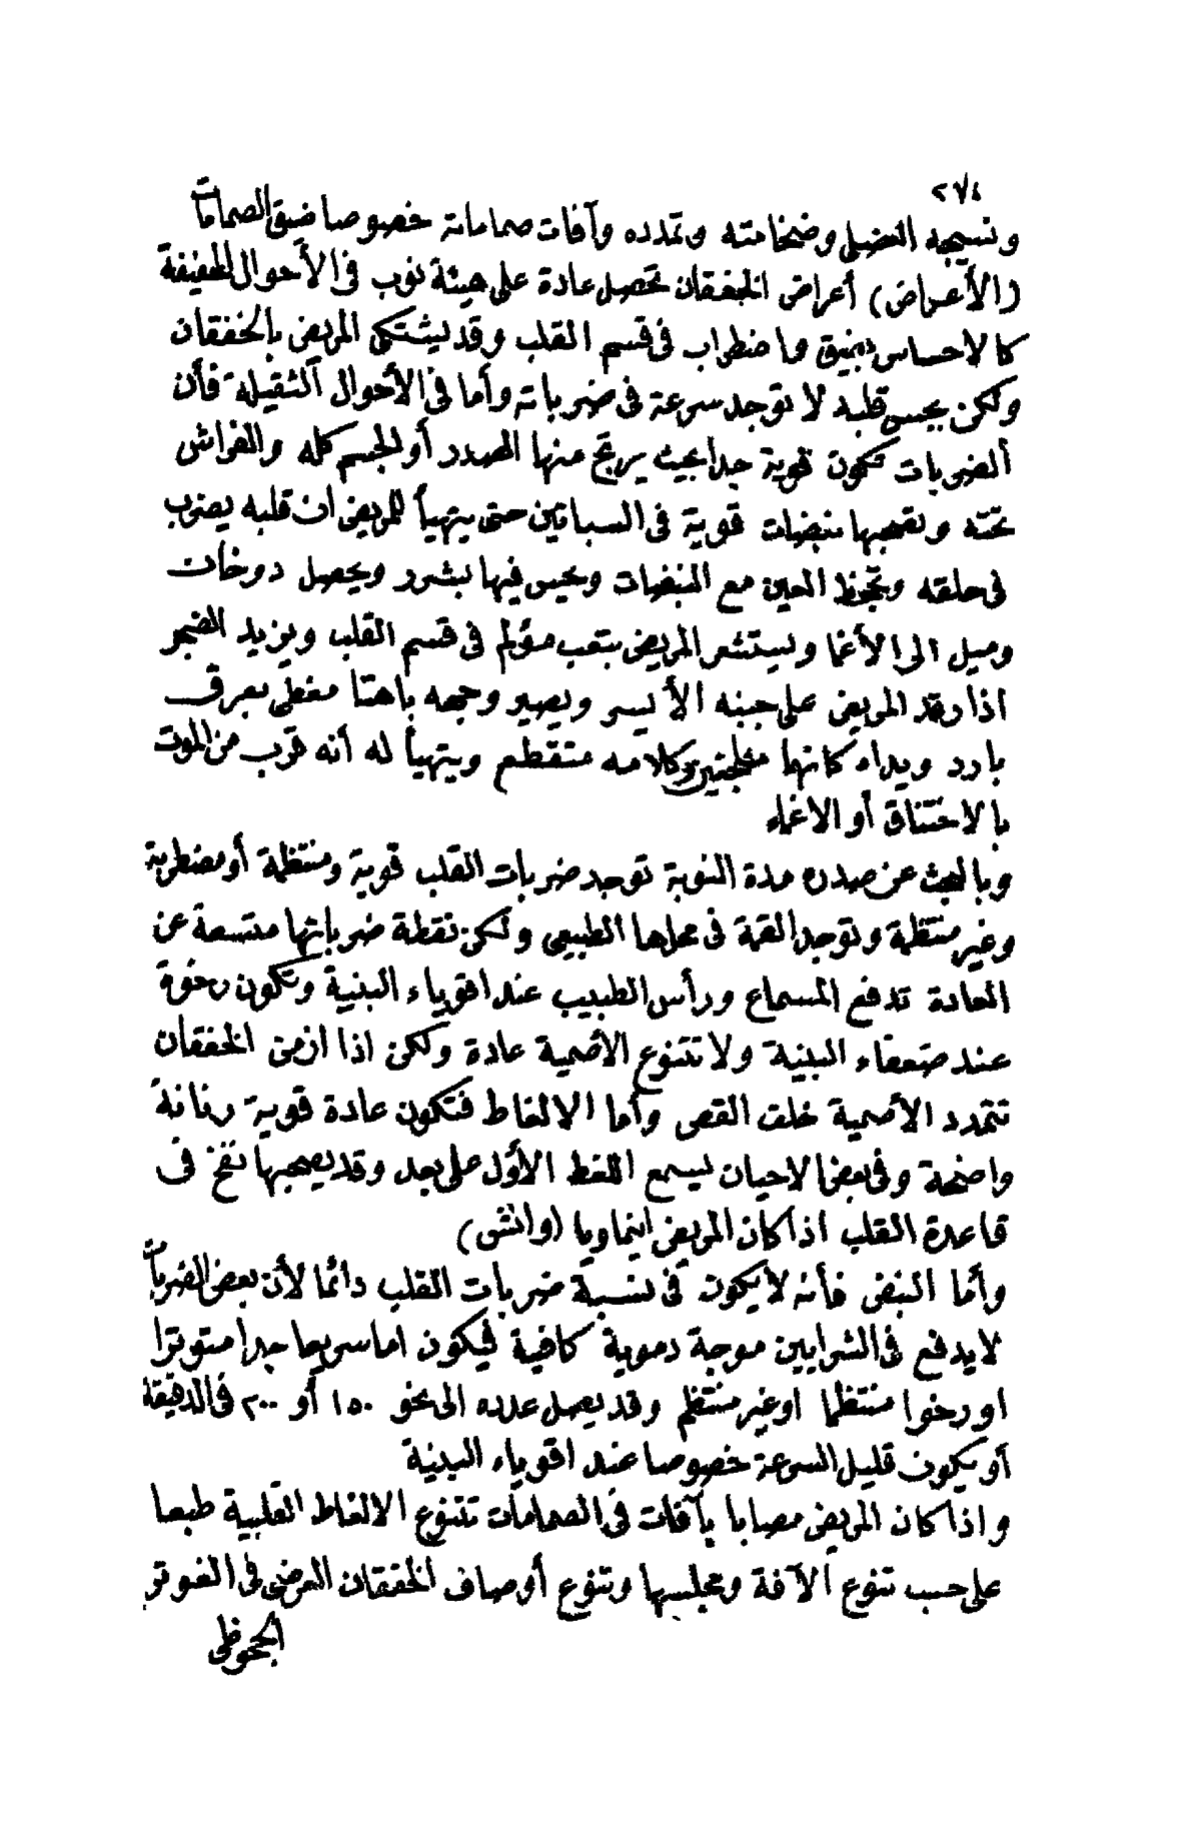 ٢٧٤
ونسيجه العضلى وضخامته وتمدده وآفات صماماته خصوصا ضيق الصمامات
(الأعراض) أعراض الخفقان تحصل عادة على هيئة نوب فى الأحوال الخفيفة
كالاحساس بضيق واضطراب فى قسم القلب وقد يشتكى المريض بالخفقان
ولكن بجس قلبه لا توجد سرعة فى ضرباته وأما فى الأحوال الثقيلة فأن
الضربات تكون قوية جدا بحيث يرتج منها الصدر أو الجسم كله والفراش
تحته وتصحبها نبضات قوية فى السباتين حتى يتهيأ للمريض ان قلبه يضرب
فى حلقه وتجحظ العين مع النبضات ويحس فيها بشرر ويحصل دوخات
وميل الى الأغما ويستشعر المريض بتعب مؤلم فى قسم القلب ويزيد الضجر
اذا رقد المريض على جنبه الأيسر ويصير وجهه باهتا مغطى بعرق
بارد ويداه كانها مثلجتين وكلامه متقطع ويتهيأ له أنه قرب من الموت
بالاختناق أو الاغماء
وبالبحث عن صدره مدة النوبة توجد ضربات القلب قوية ومنتظمة أو مضطربة
وغير منتظمة وتوجد القمة فى محلها الطبيعى ولكن نقطة ضرباتها متسعة عن
العادة تدفع المسماع ورأس الطبيب عند اقوياء البنية وتكون رخوة
عند ضعفاء البنية ولا تتنوع الأصمية عادة ولكن اذا ازمن الخفقان
تتمدد الأصمية خلف القص وأما الالغاط فتكون عادة قوية رنانة
واضحة وفى بعض الاحيان يسمع اللغط الأول على بعد وقد يصحبها نفخ فى
قاعدة القلب اذا كان المريض اينماويا (واتش)
وأما النبض فأنه لا يكون فى نسبة ضربات القلب دائما لأن بعض الضربات
لا يدفع فى الشرايين موجة دموية كافية فيكون اما سريعا جدا متوترا
او رخوا منتظما او غير منتظم وقد يصل عدده الى نحو ١٥٠ أو ٢٠٠ فى الدقيقة
أو يكون قليل السرعة خصوصا عند اقوياء البنية
واذا كان المريض مصابا بآفات فى الصمامات تتنوع الالغاط القلبية طبعا
على حسب تنوع الآفة ومجلسها وتنوع أوصاف الخفقان العرضى فى الغوتر
الجحوظى